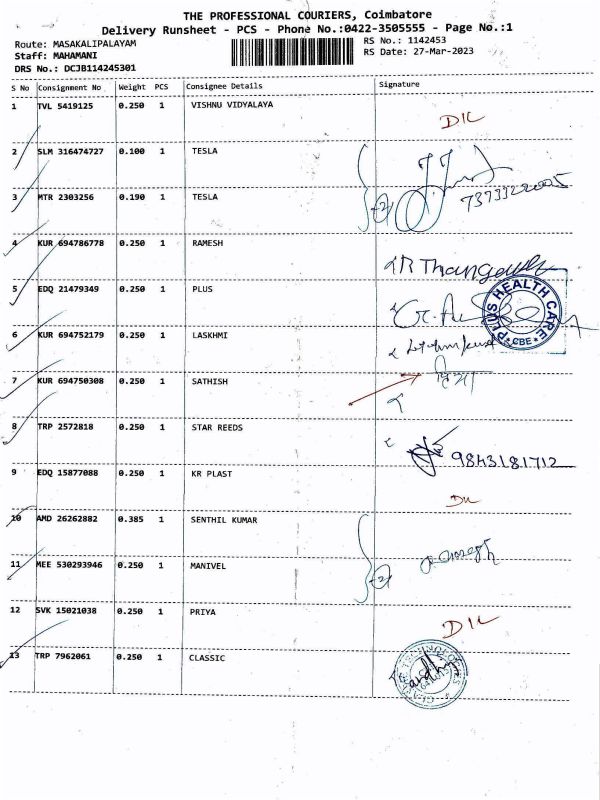 THE PROFESSIONAL COURIERS, Coimbatore
Delivery Runsheet - PCS - Phone No.:0422-3505555 - Page No.:1
Route: MASAKALIPALAYAM RS No.: 1142453
Staff: MAHAMANI RS Date: 27-Mar-2023
DRS No.: DCJB114245301
S No Consignment No Weight PCS Consignee Details Signature
1 TVL 5419125 0.250 1 VISHNU VIDYALAYA
DIL
2 SLM 316474727 0.100 1 TESLA
3 MTR 2303256 0.190 1 TESLA
7373322005
4 KUR 694786778 0.250 1 RAMESH
R Thangavelu
5 EDQ 21479349 0.250 1 PLUS
PLUS HEALTH CARE
CBE
6 KUR 694752179 0.250 1 LASKHMI
7 KUR 694750308 0.250 1 SATHISH
8 TRP 2572818 0.250 1 STAR REEDS
9843181712
9 EDQ 15877088 0.250 1 KR PLAST
DIL
10 AMD 26262882 0.385 1 SENTHIL KUMAR
11 MEE 530293946 0.250 1 MANIVEL
12 SVK 15021038 0.250 1 PRIYA
DIL
13 TRP 7962061 0.250 1 CLASSIC